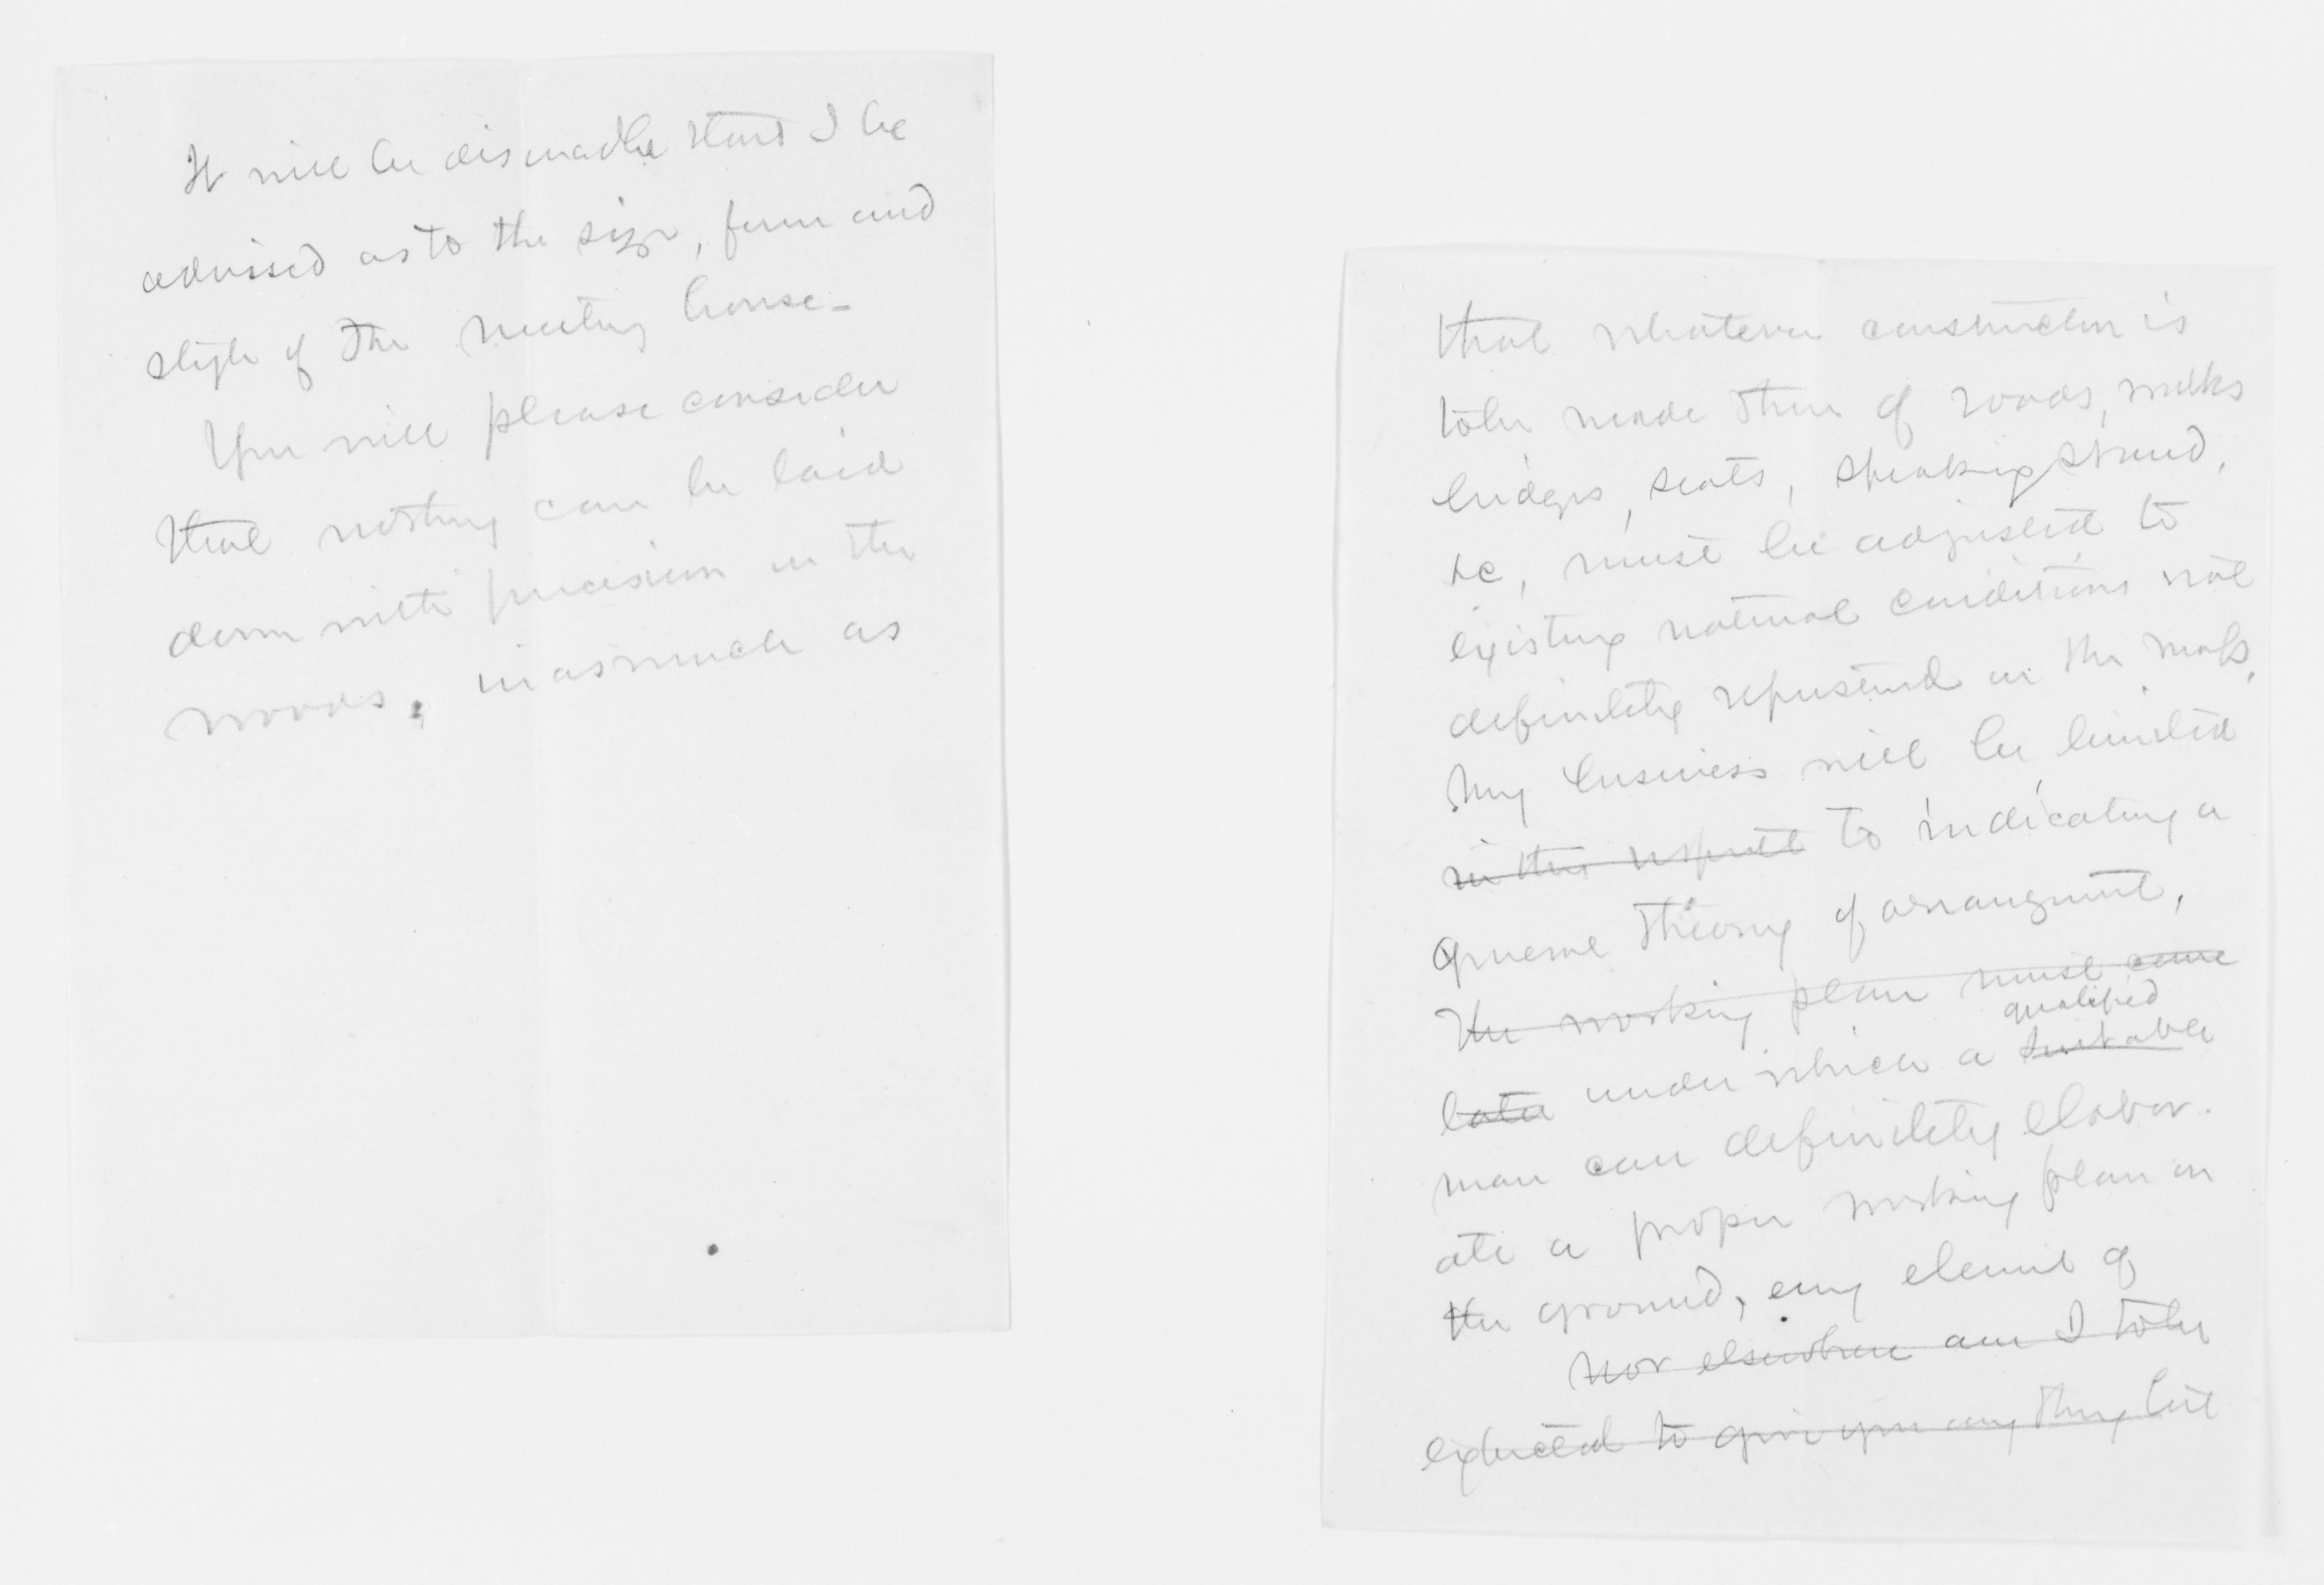 It will be desirable that I be
advised as to the size, form and
style of the meeting house -
You will please consider
that nothing can be laid
down with precision in the
woods, inasmuch as
that whatever construction is
to be made there of roads, walks
bridges, seats, speaking stand,
&c, must be adjusted to
existing natural conditions not
definitely represented on the map,
My business will be limited
in this respect to indicating a
general theory of arrangement,
the working plan must come
qualified
later under which a suitable
man can definitely elabor-
ate a proper working plan on
the ground, every element of
nor elsewhere am I to be
expected to give you any thing but